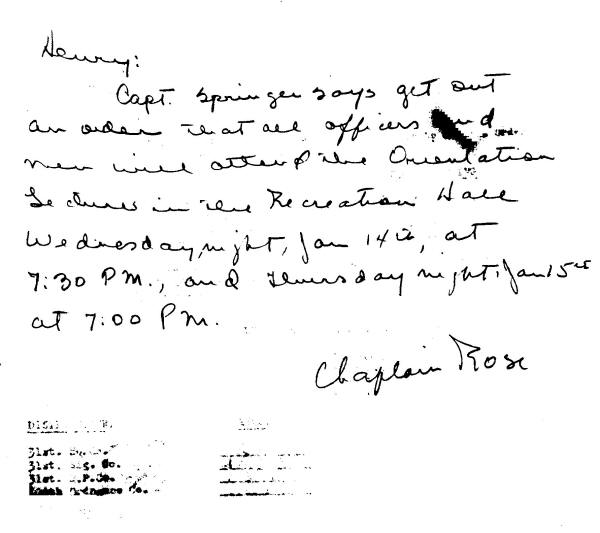 Henry:
Capt. Springer says get out
an order that all officers and
men will attend the Orientation
Lectures in the Recreation Hall
Wednesday, night, Jan 14th, at
7:30 P.M., and Thursday night, Jan 15th
at 7:00 P.M.
Chaplain Rose
31st.
31st. Sig. Co.
31st. M.P.Co.
Ordnance Co.